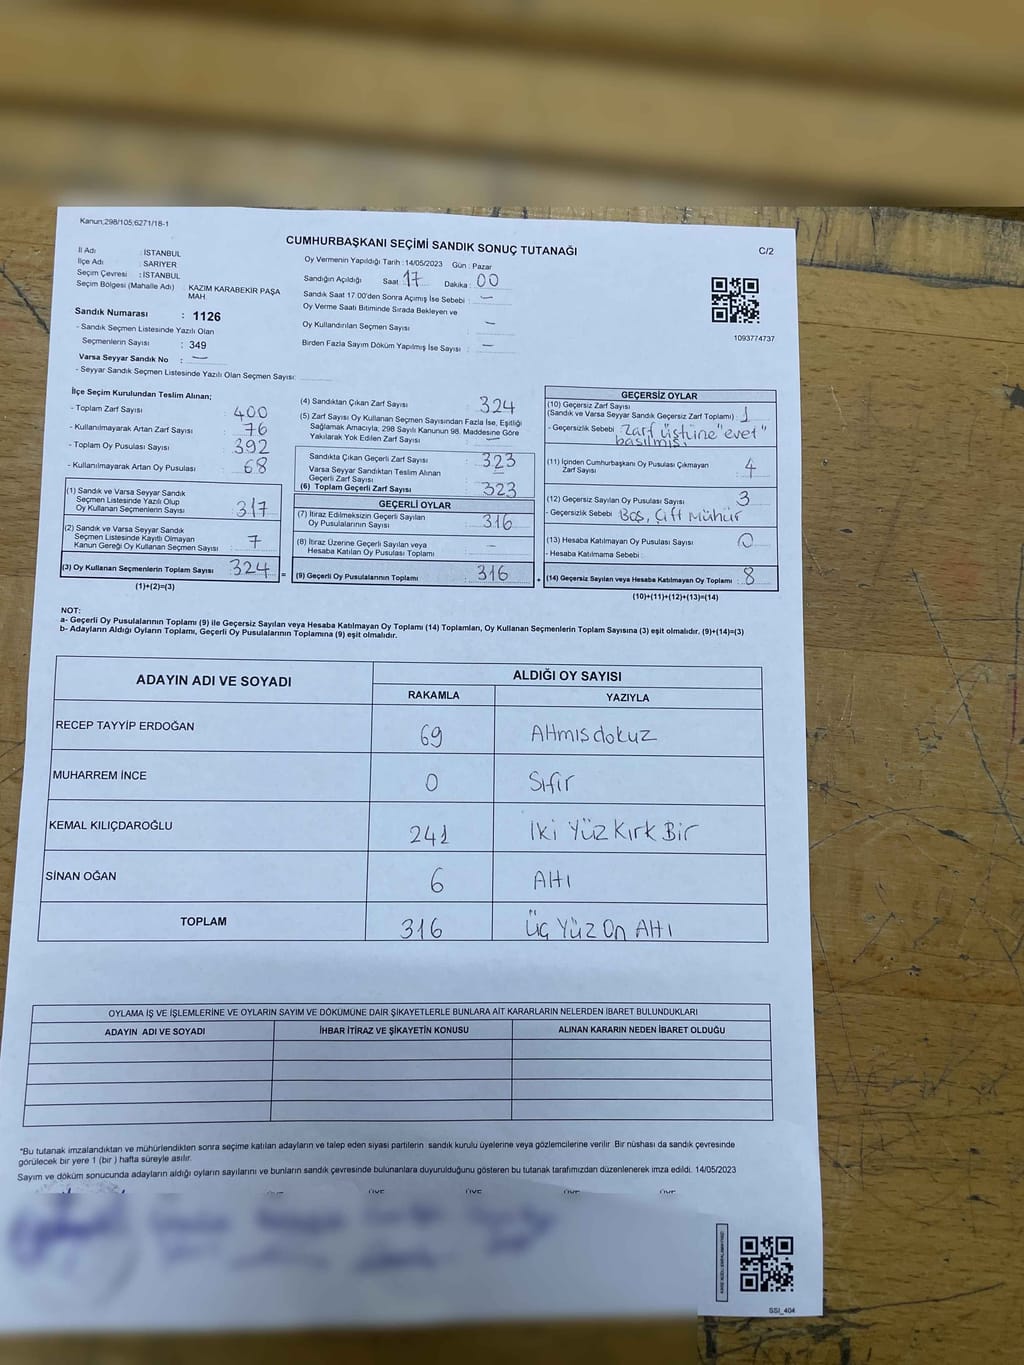 Kanun;298/105;6271/18-1
CUMHURBAŞKANI SEÇİMİ SANDIK SONUÇ TUTANAĞI
C/2
İl Adı : İSTANBUL
İlçe Adı : SARIYER
Seçim Çevresi : İSTANBUL
Seçim Bölgesi (Mahalle Adı) : KAZIM KARABEKİR PAŞA
MAH.
Sandık Numarası : 1126
- Sandık Seçmen Listesinde Yazılı Olan
Seçmenlerin Sayısı : 349
Varsa Seyyar Sandık No : —
- Seyyar Sandık Seçmen Listesinde Yazılı Olan Seçmen Sayısı:
Oy Vermenin Yapıldığı Tarih : 14/05/2023 Gün : Pazar
Sandığın Açıldığı Saat : 17 Dakika : 00
Sandık Saat 17.00'den Sonra Açılmış İse Sebebi : —
Oy Verme Saati Bitiminde Sırada Bekleyen ve
Oy Kullandırılan Seçmen Sayısı : —
Birden Fazla Sayım Döküm Yapılmış İse Sayısı : —
1093774737
İlçe Seçim Kurulundan Teslim Alınan;
- Toplam Zarf Sayısı : 400
- Kullanılmayarak Artan Zarf Sayısı : 76
- Toplam Oy Pusulası Sayısı : 392
- Kullanılmayarak Artan Oy Pusulası : 68
(1) Sandık ve Varsa Seyyar Sandık
Seçmen Listesinde Yazılı Olup
Oy Kullanan Seçmenlerin Sayısı : 317
(2) Sandık ve Varsa Seyyar Sandık
Seçmen Listesinde Kayıtlı Olmayan
Kanun Gereği Oy Kullanan Seçmen Sayısı : 7
(3) Oy Kullanan Seçmenlerin Toplam Sayısı : 324
(1)+(2)=(3)
(4) Sandıktan Çıkan Zarf Sayısı : 324
(5) Zarf Sayısı Oy Kullanan Seçmen Sayısından Fazla İse, Eşitliği
Sağlamak Amacıyla, 298 Sayılı Kanunun 98. Maddesine Göre
Yakılarak Yok Edilen Zarf Sayısı : —
Sandıkta Çıkan Geçerli Zarf Sayısı : 323
Varsa Seyyar Sandıktan Teslim Alınan
Geçerli Zarf Sayısı : —
(6) Toplam Geçerli Zarf Sayısı : 323
GEÇERLİ OYLAR
(7) İtiraz Edilmeksizin Geçerli Sayılan
Oy Pusulalarının Sayısı : 316
(8) İtiraz Üzerine Geçerli Sayılan veya
Hesaba Katılan Oy Pusulası Toplamı : —
= (9) Geçerli Oy Pusulalarının Toplamı : 316 +
GEÇERSİZ OYLAR
(10) Geçersiz Zarf Sayısı
(Sandık ve Varsa Seyyar Sandık Geçersiz Zarf Toplamı) : 1
- Geçersizlik Sebebi : Zarf üstüne "evet"
basılmış
(11) İçinden Cumhurbaşkanı Oy Pusulası Çıkmayan
Zarf Sayısı : 4
(12) Geçersiz Sayılan Oy Pusulası Sayısı : 3
- Geçersizlik Sebebi : Boş, Çift Mühür
(13) Hesaba Katılmayan Oy Pusulası Sayısı : 0
- Hesaba Katılmama Sebebi :
(14) Geçersiz Sayılan veya Hesaba Katılmayan Oy Toplamı : 8
(10)+(11)+(12)+(13)=(14)
NOT:
a- Geçerli Oy Pusulasının Toplamı (9) ile Geçersiz Sayılan veya Hesaba Katılmayan Oy Toplamı (14) Toplamları, Oy Kullanan Seçmenlerin Toplam Sayısına (3) eşit olmalıdır. (9)+(14)=(3)
b- Adayların Aldığı Oyların Toplamı, Geçerli Oy Pusulalarının Toplamına (9) eşit olmalıdır.
ADAYIN ADI VE SOYADI ALDIĞI OY SAYISI
RAKAMLA YAZIYLA
RECEP TAYYİP ERDOĞAN 69 Altmışdokuz
MUHARREM İNCE 0 Sıfır
KEMAL KILIÇDAROĞLU 241 İki Yüz Kırk Bir
SİNAN OĞAN 6 Altı
TOPLAM 316 Üç Yüz On Altı
OYLAMA İŞ VE İŞLEMLERİNE VE OYLARIN SAYIM VE DÖKÜMÜNE DAİR ŞİKAYETLERLE BUNLARA AİT KARARLARIN NELERDEN İBARET BULUNDUKLARI
ADAYIN ADI VE SOYADI İHBAR İTİRAZ VE ŞİKAYETİN KONUSU ALINAN KARARIN NEDEN İBARET OLDUĞU
*Bu tutanak imzalandıktan ve mühürlendikten sonra seçime katılan adayların ve talep eden siyasi partilerin sandık kurulu üyelerine veya gözlemcilerine verilir. Bir nüshası da sandık çevresinde
görülecek bir yere 1 (bir) hafta süreyle asılır.
Sayım ve döküm sonucunda adayların aldığı oyların sayılarını ve bunların sandık çevresinde bulunanlara duyurulduğunu gösteren bu tutanak tarafımızdan düzenlenerek imza edildi. 14/05/2023
ÜYE ÜYE ÜYE ÜYE ÜYE
SSI_404